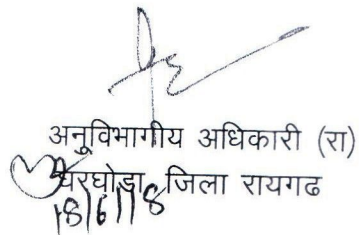 अनुविभागीय अधिकारी (रा)
घरघोड़ा जिला रायगढ
18/6/18